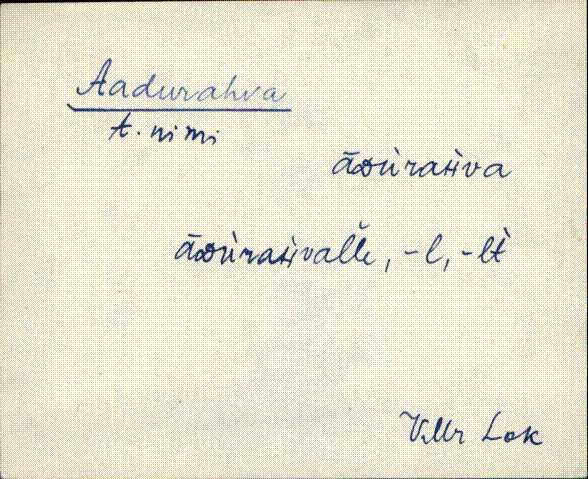 Aadurahva
t. nimi
āᴅùrahva
āᴅùrahvalle, -l, -lt
V.Mr Lok